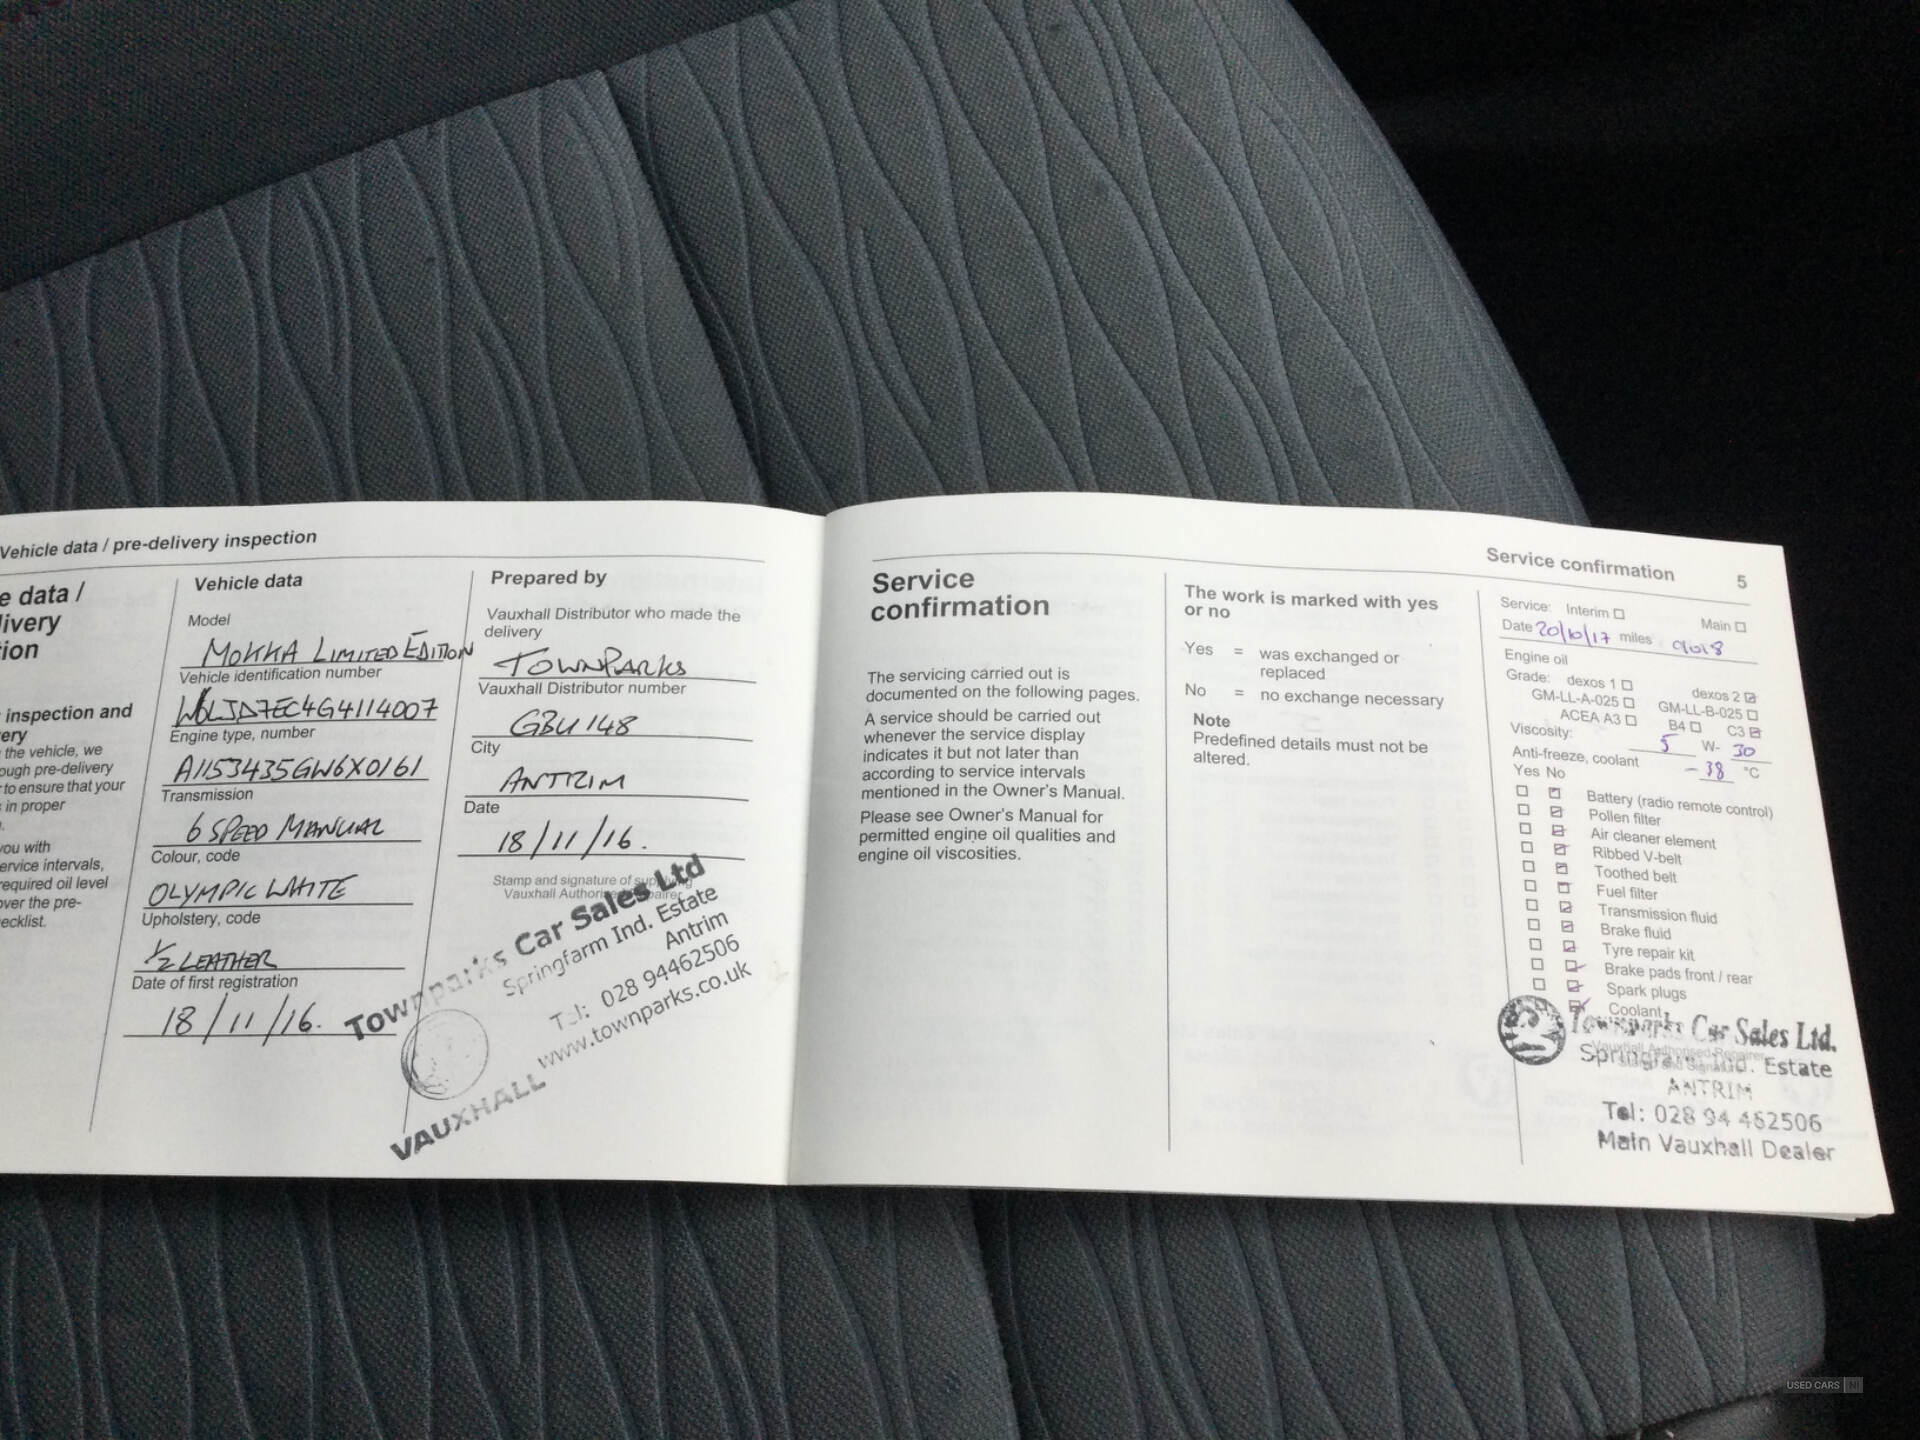 Vehicle data / pre-delivery inspection
e data /
livery
ion
inspection and
ery
the vehicle, we
ough pre-delivery
to ensure that your
in proper
you with
ervice intervals,
required oil level
over the pre-
ecklist.
Vehicle data
Model
MOKKA LIMITED EDITION
Vehicle identification number
W0LJD7EC4G4114007
Engine type, number
A1153435GW6X0161
Transmission
6 SPEED MANUAL
Colour, code
OLYMPIC WHITE
Upholstery, code
1/2 LEATHER
Date of first registration
18/11/16.
Prepared by
Vauxhall Distributor who made the
delivery
TOWNPARKS
Vauxhall Distributor number
GBU 148
City
ANTRIM
Date
18/11/16.
Stamp and signature of supplying
Vauxhall Authorised Repairer
Townparks Car Sales Ltd
Springfarm Ind. Estate
Antrim
Tel: 028 94462506
www.townparks.co.uk
VAUXHALL
Service confirmation 5
Service
confirmation
The servicing carried out is
documented on the following pages.
A service should be carried out
whenever the service display
indicates it but not later than
according to service intervals
mentioned in the Owner's Manual.
Please see Owner's Manual for
permitted engine oil qualities and
engine oil viscosities.
The work is marked with yes
or no
Yes = was exchanged or
replaced
No = no exchange necessary
Note
Predefined details must not be
altered.
Service: Interim Main
Date 20/10/17 miles 9018
Engine oil
Grade: dexos 1 dexos 2
GM-LL-A-025 GM-LL-B-025
ACEA A3 B4 C3
Viscosity: 5 W- 30
Anti-freeze, coolant -38 °C
Yes No
Battery (radio remote control)
Pollen filter
Air cleaner element
Ribbed V-belt
Toothed belt
Fuel filter
Transmission fluid
Brake fluid
Tyre repair kit
Brake pads front / rear
Spark plugs
Coolant
Townparks Car Sales Ltd.
Vauxhall Authorised Repairer
Springfarm Ind. Estate
ANTRIM
Tel: 028 94 462506
Main Vauxhall Dealer
USED CARS NI